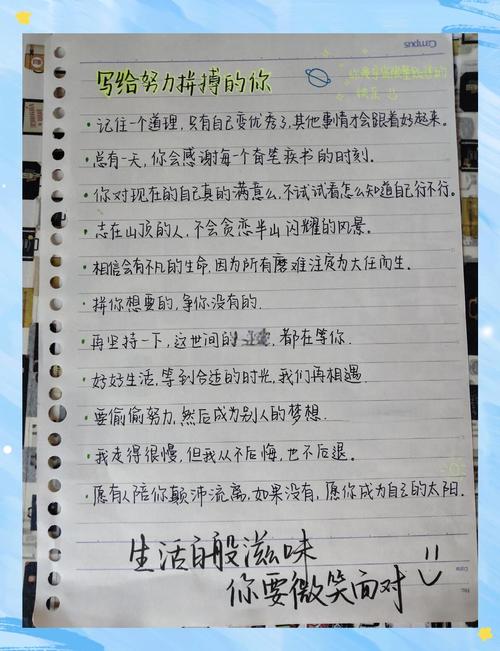 Campus
写给努力拼搏的你
快乐
·记住一个道理,只有自己变优秀了,其他事情才会跟着好起来.
·总有一天,你会感谢每一个奋笔疾书的时刻.
·你对现在的自己真的满意么,不试试看怎么知道自己行不行。
·志在山顶的人,不会贪恋半山闪耀的风景.
·相信会有不凡的生命,因为所有磨难注定为大任而生.
·拼你想要的,争你没有的.
·再坚持一下,这世间的 都在等你.
·好好生活,等到合适的时光,我们再相遇.
·要偷偷努力,然后成为别人的梦想.
·我走得很慢,但我从不后悔,也不后退。
·愿有人陪你颠沛流离,如果没有,愿你成为自己的太阳.
生活百般滋味
你要微笑面对